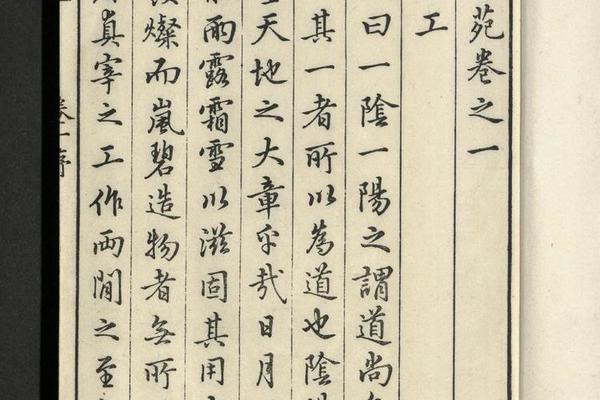 苑卷之一
工
曰一陰一陽之謂道尚
其一者所以為道也陰
天地之大章乎哉日月
雨露霜雪以滋固其用
燦而嵐碧造物者無所
真宰之工作兩間之至
卷一序